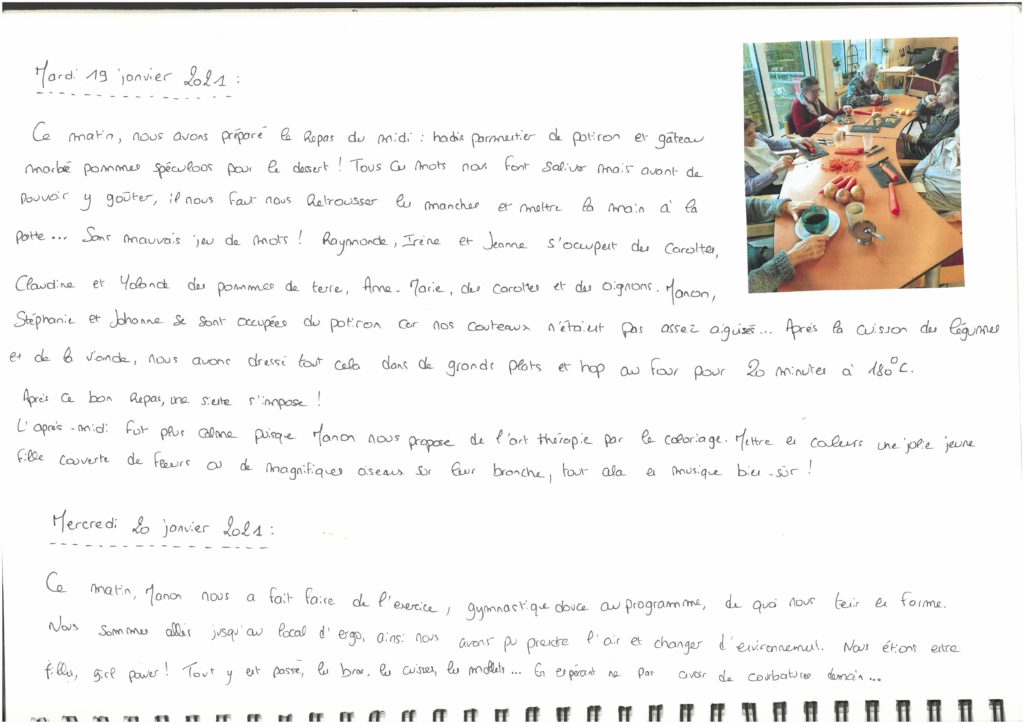 Mardi 19 janvier 2021 :
Ce matin, nous avons préparé le repas du midi : hachis parmentier de potiron et gâteau
marbé pommes spéculoos pour le dessert ! Tous ce mots nous font saliver mais avant de
pouvoir y goûter, il nous faut nous retrousser les manches et mettre la main à la
patte... Sans mauvais jeu de mots ! Raymonde, Irène et Jeanne s'occupent des carottes,
Claudine et Yolande des pommes de terre, Anne-Marie, des carottes et des oignons. Manon,
Stéphanie et Johanne se sont occupées du potiron car nos couteaux n'étaient pas assez aiguisés... Après la cuisson des légumes
et de la viande, nous avons dressé tout cela dans de grands plats et hop au four pour 20 minutes à 180°C.
Après ce bon repas, une sieste s'impose !
L'après-midi fut plus calme puisque Manon nous propose de l'art thérapie par le coloriage. Mettre en couleurs une jolie jeune
fille couverte de fleurs ou de magnifiques oiseaux sur leur branche, tout cela en musique bien-sûr !
Mercredi 20 janvier 2021 :
Ce matin, Manon nous a fait faire de l'exercice, gymnastique douce au programme, de quoi nous tenir en forme.
Nous sommes allés jusqu'au local d'ergo, ainsi nous avons pu prendre l'air et changer d'environnement. Nous étions entre
filles, girl power ! Tout y est passé, les bras, les cuisses, les mollets... En espérant ne pas avoir de courbatures demain...